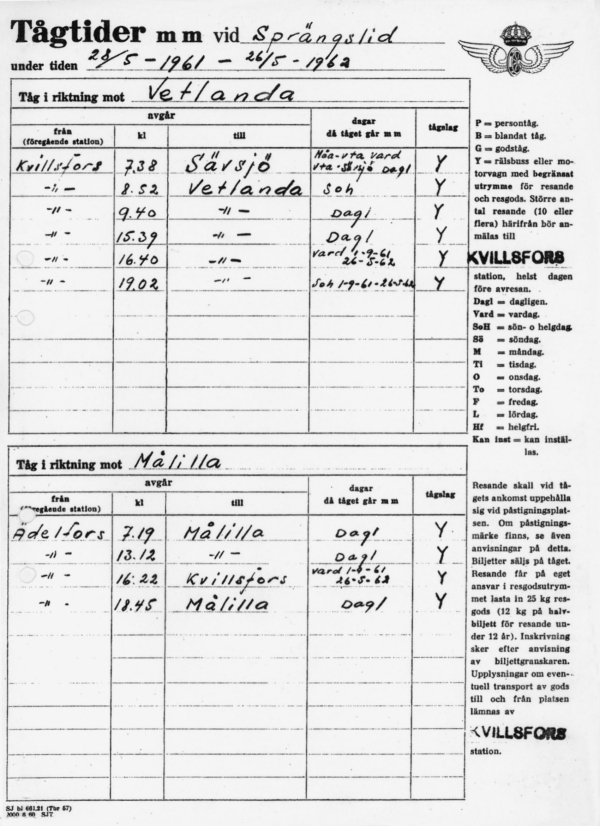 Tågtider m m vid Sprängslid
under tiden 28/5 - 1961 - 26/5 - 1962
Tåg i riktning mot Vetlanda
avgår
från
(föregående station)
kl
till
dagar
då tåget går m m
tågslag
Kvillsfors 7.38 Sävsjö Höa-vta vard
vta-Sävsjö Dagl Y
-"- 8.52 Vetlanda SoH Y
-"- 9.40 -"- Dagl Y
-"- 15.39 -"- Dagl Y
-"- 16.40 -"- vard 1-9-61
26-5-62 Y
-"- 19.02 -"- SoH 1-9-61-26-5-62 Y
Tåg i riktning mot Målilla
avgår
från
(föregående station)
kl
till
dagar
då tåget går m m
tågslag
Ädelfors 7.19 Målilla Dagl Y
-"- 13.12 -"- Dagl Y
-"- 16.22 Kvillsfors vard 1-9-61
26-5-62 Y
-"- 18.45 Målilla Dagl Y
P = persontåg.
B = blandat tåg.
G = godståg.
Y = rälsbuss eller mo-
torvagn med begränsat
utrymme för resande
och resgods. Större an-
tal resande (10 eller
flera) härifrån bör an-
mälas till
KVILLSFORS
station, helst dagen
före avresan.
Dagl = dagligen.
Vard = vardag.
SoH = sön- o helgdag.
Sö = söndag.
M = måndag.
Ti = tisdag.
O = onsdag.
To = torsdag.
F = fredag.
L = lördag.
Hf = helgfri.
Kan inst = kan instäl-
las.
Resande skall vid tå-
gets ankomst uppehålla
sig vid påstigningsplat-
sen. Om påstignings-
märke finns, se även
anvisningar på detta.
Biljetter säljs på tåget.
Resande får på eget
ansvar i resgodsutrym-
met lasta in 25 kg res-
gods (12 kg på halv-
biljett för resande un-
der 12 år). Inskrivning
sker efter anvisning
av biljettgranskaren.
Upplysningar om even-
tuell transport av gods
till och från platsen
lämnas av
KVILLSFORS
station.
SJ bl 661.21 (Tbr 57)